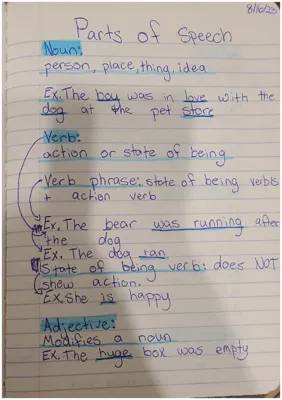 8/16/23
Parts of Speech
Noun:
person, place, thing, idea
Ex. The boy was in love with the
dog at the pet store
Verb:
action or state of being
Verb phrase: state of being verbs
+ action verb
Ex. The bear was running after
the dog
Ex. The dog ran
State of being verb: does NOT
show action.
Ex. She is happy
Adjective:
Modifies a noun
Ex. The huge box was empty